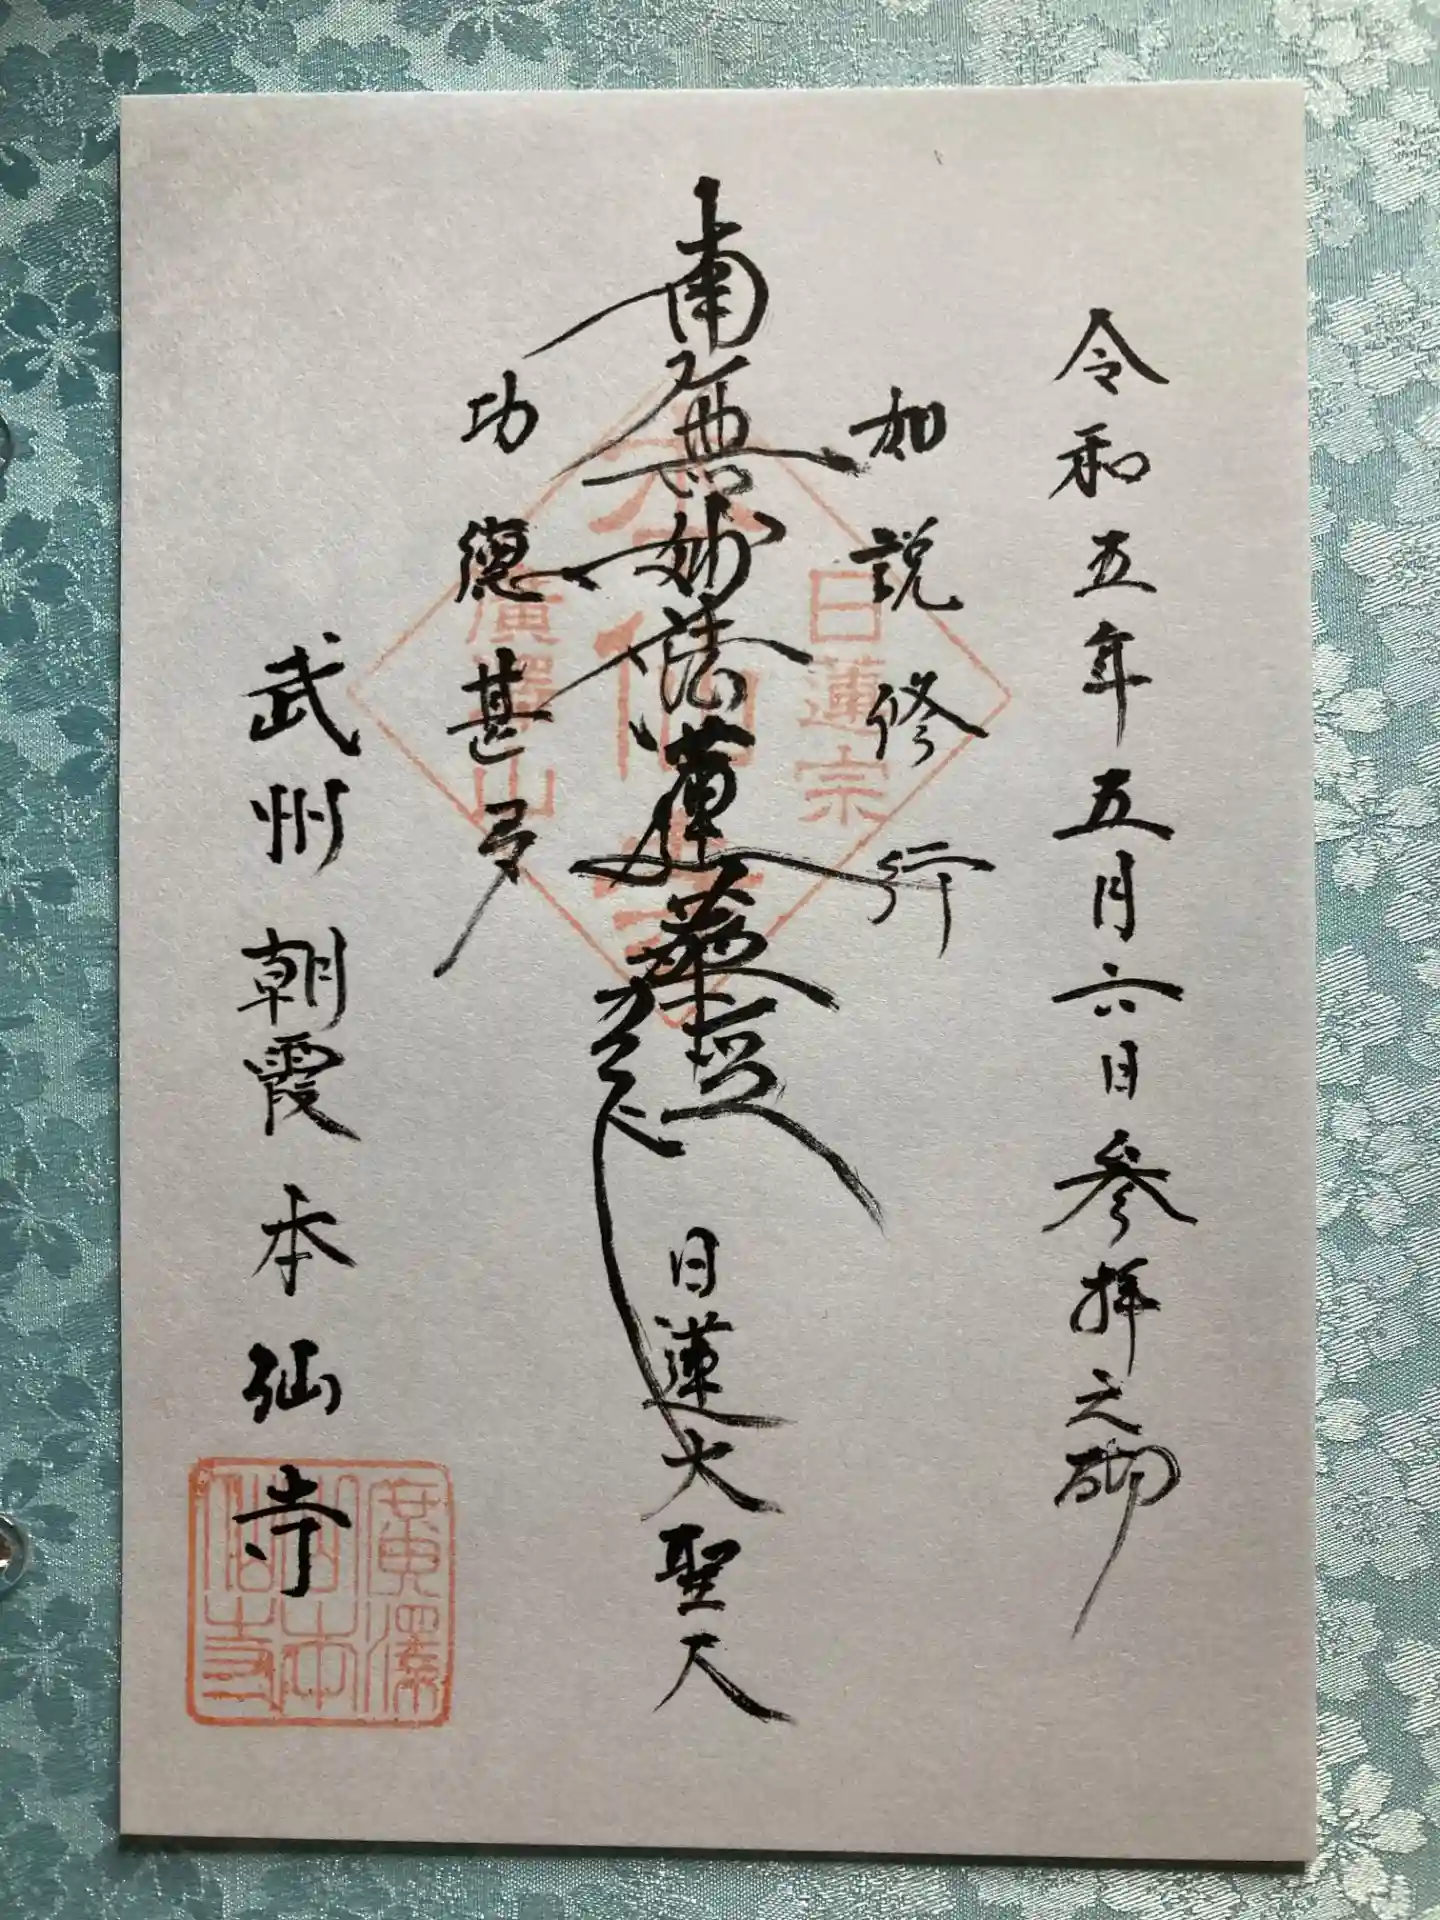 令和五年五月六日参拝之砌
如説修行
日蓮宗
南無妙法蓮華経
日蓮大聖人
本仙寺
功徳甚多
廣澤山
武州朝霞本仙寺
廣澤山本仙寺